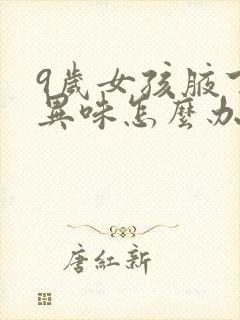 9歲女孩腋下
異味怎麼办
唐紅新